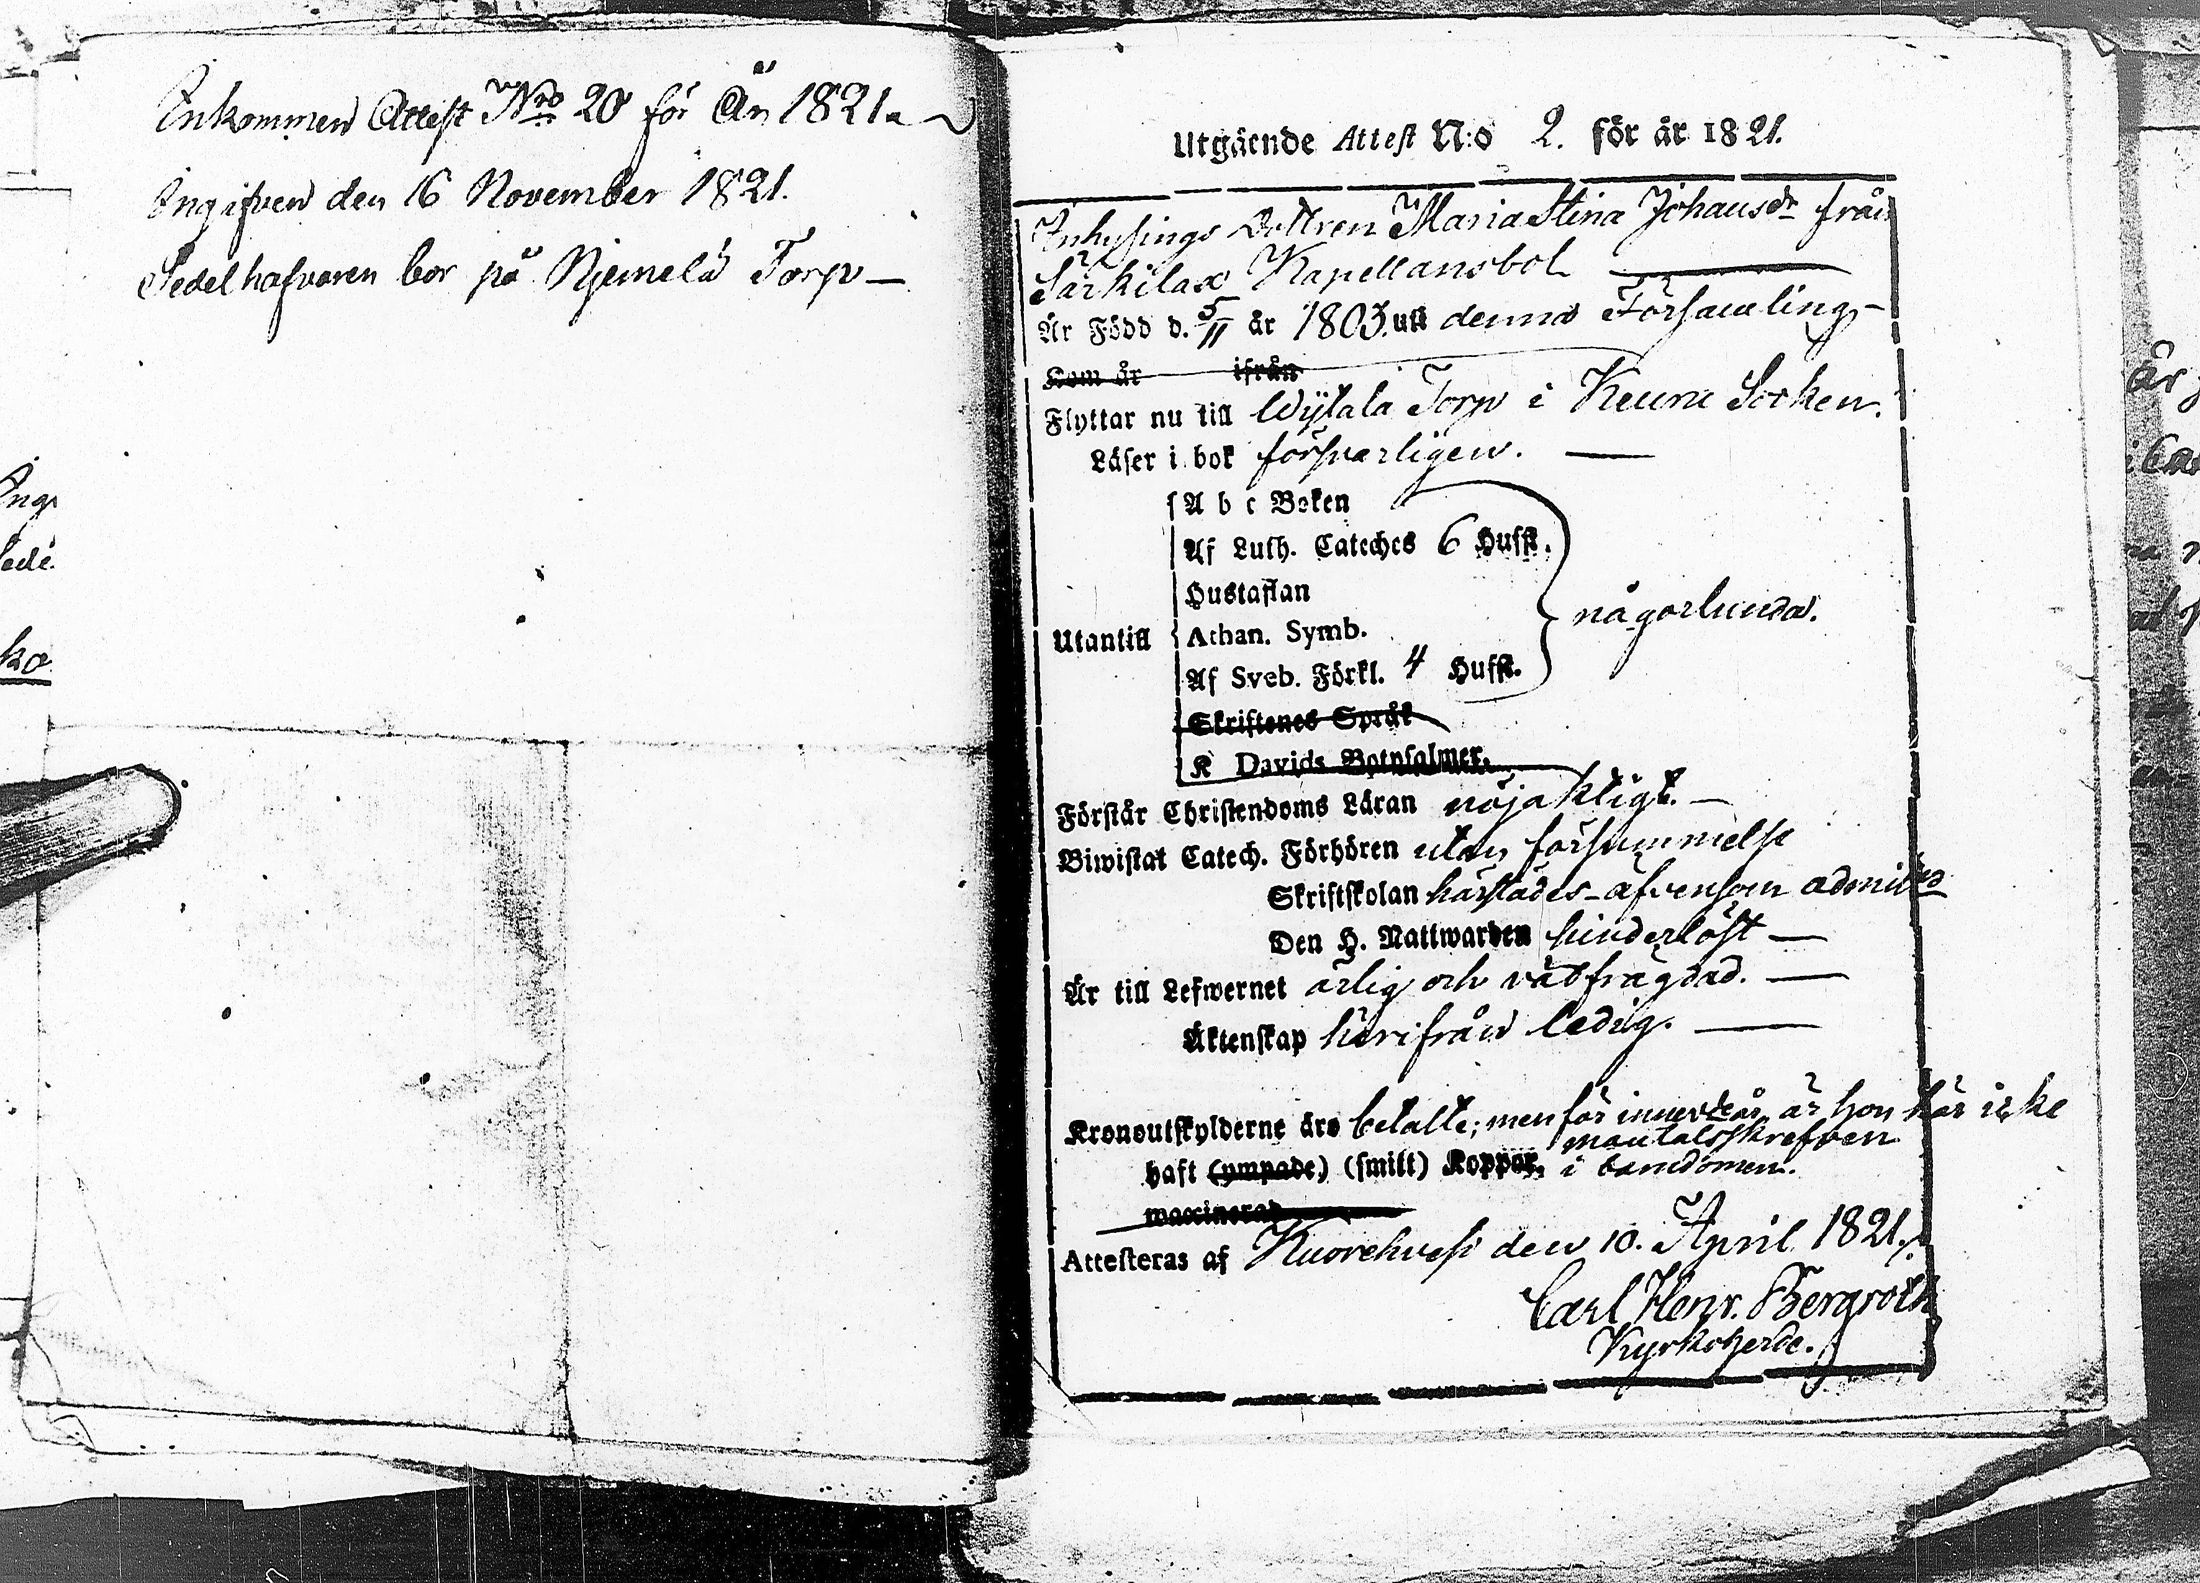 Inkommen Attest Nro 20 för År 1821.
Ingifven den 16 November 1821.
Sedelhafvaren bor på Njemelä Torp —
Utgående Attest N:o 2. för år 1821.
Inhysings Dottren Maria Stina Johansdr från
Särkilax Kapellansbol
Är Född d. 5/11 år 1803. uti denna Församling —
Kom år ifrån
Flyttar nu till Wytala Torp i Keuru Socken.
Läser i bok försvarligen. —
A b c Boken
Af Luth. Cateches 6 Hufst.
Hustaflan
Utantill Athan. Symb. någorlunda.
Af Sveb. Förkl. 4 Hufst.
Skriftenes Språk
K Davids Botpsalmer.
Förstår Christendoms Läran nöjaktigt. —
Biwistat Catech. Förhören utan försummelse
Skriftskolan härstädes - äfvensom
Den H. Nattwarden hinderlöst —
Är till Lefwernet ärlig och välfrägdad. —
Äktenskap härifrån ledig. —
Kronoutskylderne äro betalte; men för innevde år är hon här icke
mantalsskrefven
haft (ympade) (smitt) Koppor. i barndomen.
waccinerad
Attesteras af Kuorehvesi den 10. April 1821.
Carl Henr. Bergroth
Kyrkoherde.